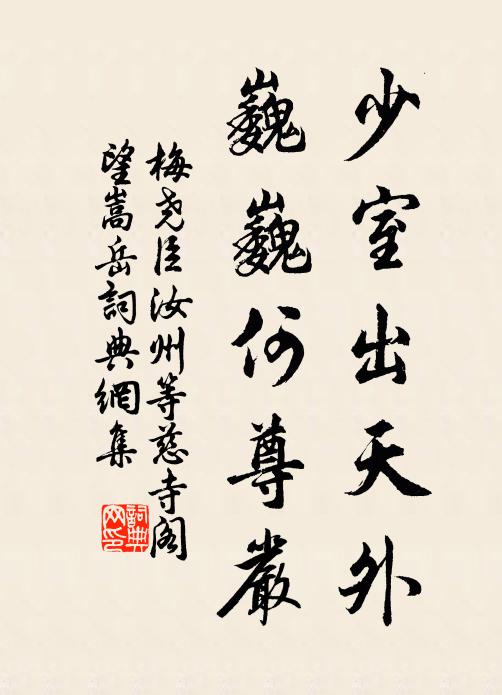 少室出天外
巍巍何尊嚴
梅尧臣汝州等慈寺阁
望嵩岳詞典網集
詞典
网印